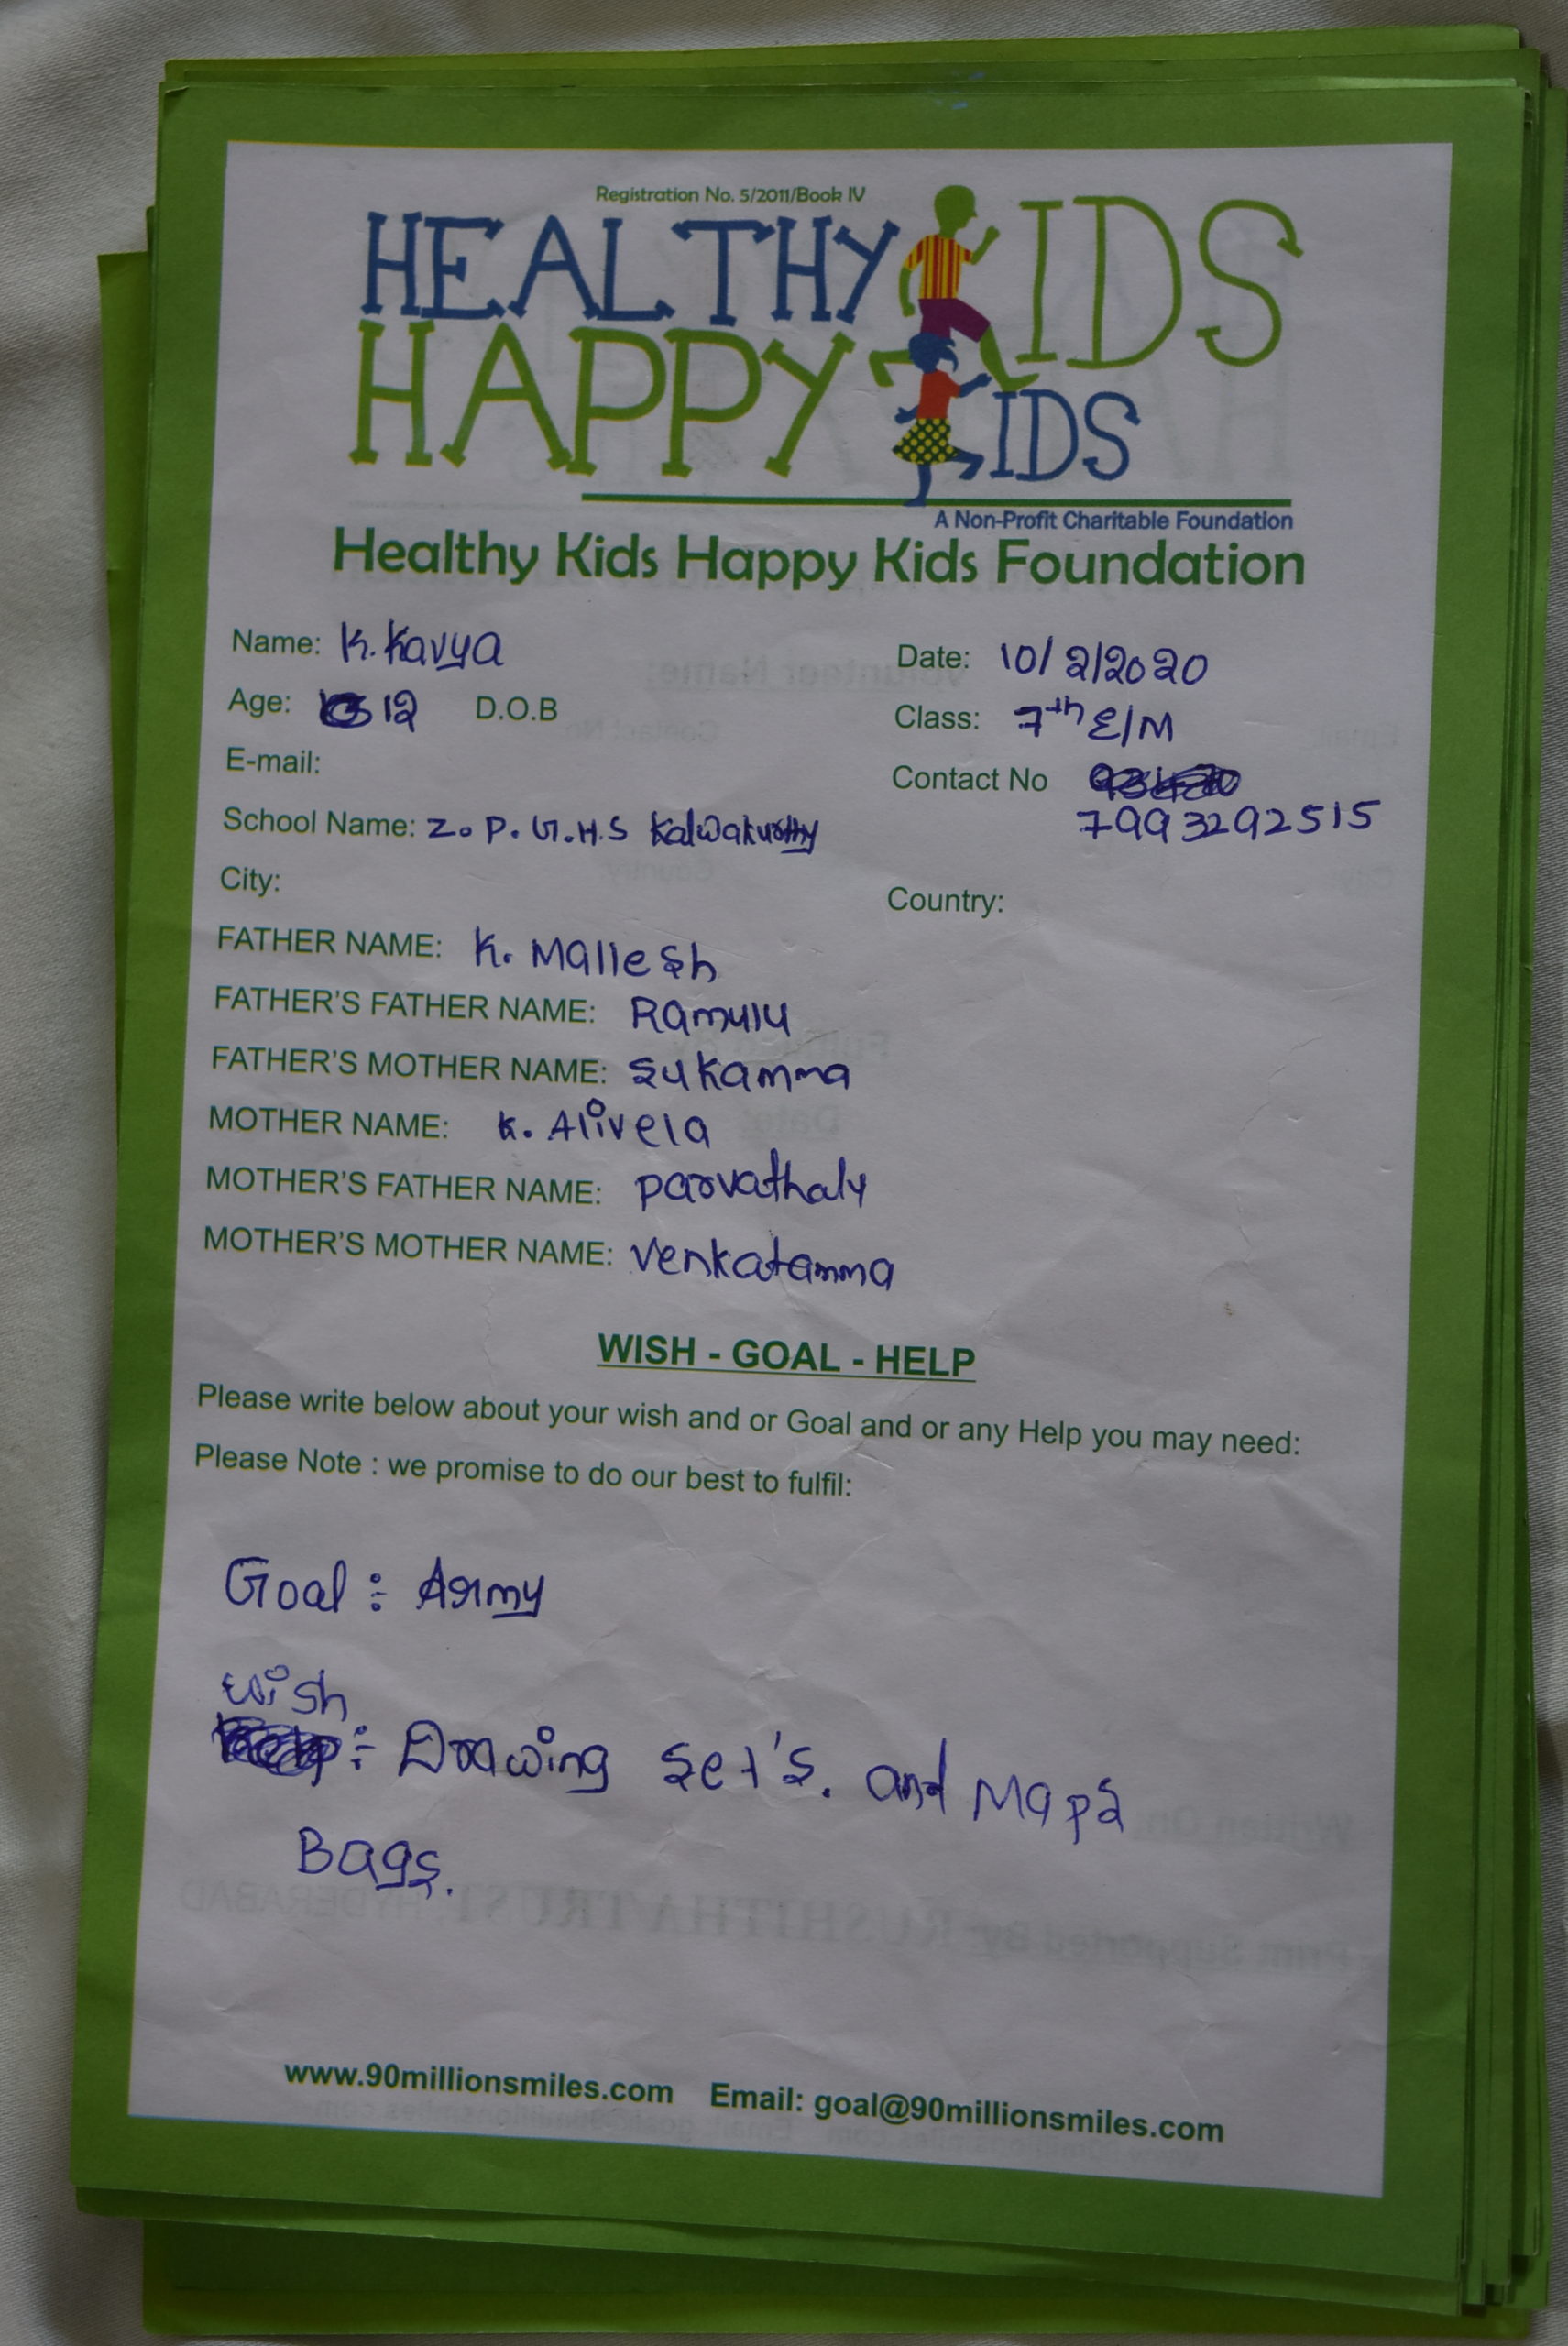 Registration No. 5/2011/Book IV
HEALTHY KIDS
HAPPY KIDS
A Non-Profit Charitable Foundation
Healthy Kids Happy Kids Foundation
Name: K. Kavya Date: 10/2/2020
Age: 12 D.O.B Class: 7th E/M
E-mail: Contact No
7993292515
School Name: Z. P. G.H.S Kalwakurthy
City: Country:
FATHER NAME: K. Mallesh
FATHER'S FATHER NAME: Ramulu
FATHER'S MOTHER NAME: Sukamma
MOTHER NAME: K. Alivela
MOTHER'S FATHER NAME: Parvathaly
MOTHER'S MOTHER NAME: Venkatamma
WISH - GOAL - HELP
Please write below about your wish and or Goal and or any Help you may need:
Please Note : we promise to do our best to fulfil:
Goal : Army
wish
: Drawing Set's. and Maps
Bags.
www.90millionsmiles.com Email: goal@90millionsmiles.com